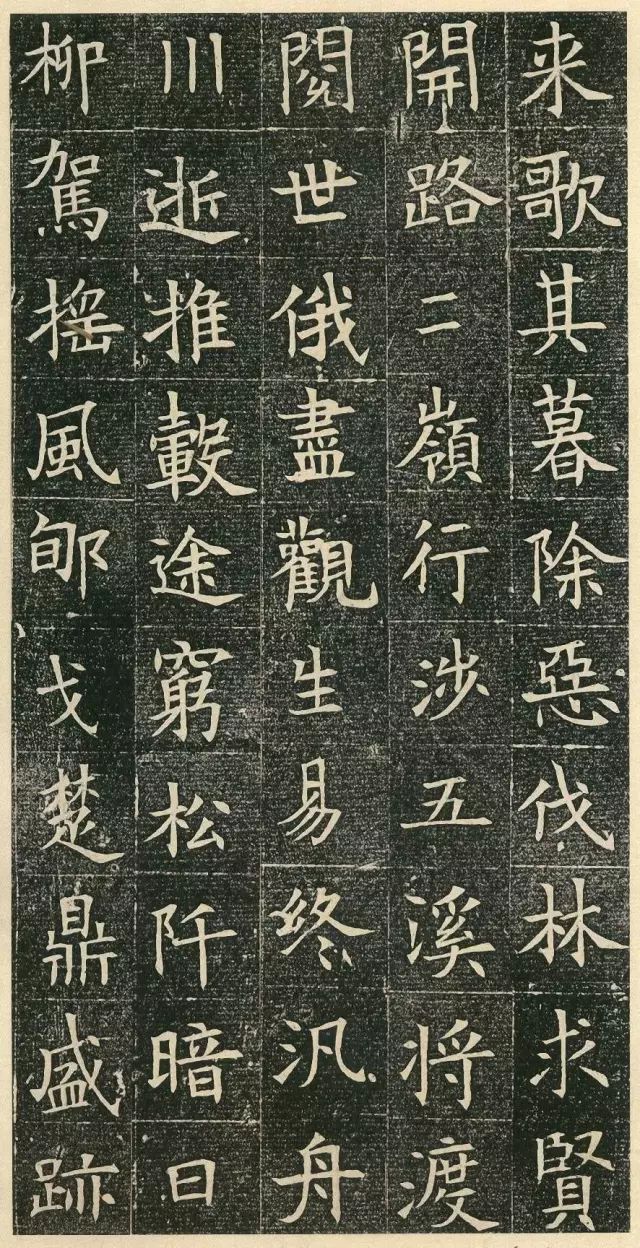 来歌其暮除惡伐林求賢
開路二嶺行涉五溪将渡
閱世俄盡觀生易終汎舟
川逝推轂途窮松阡暗日
柳駕搖風郇戈楚鼎盛跡